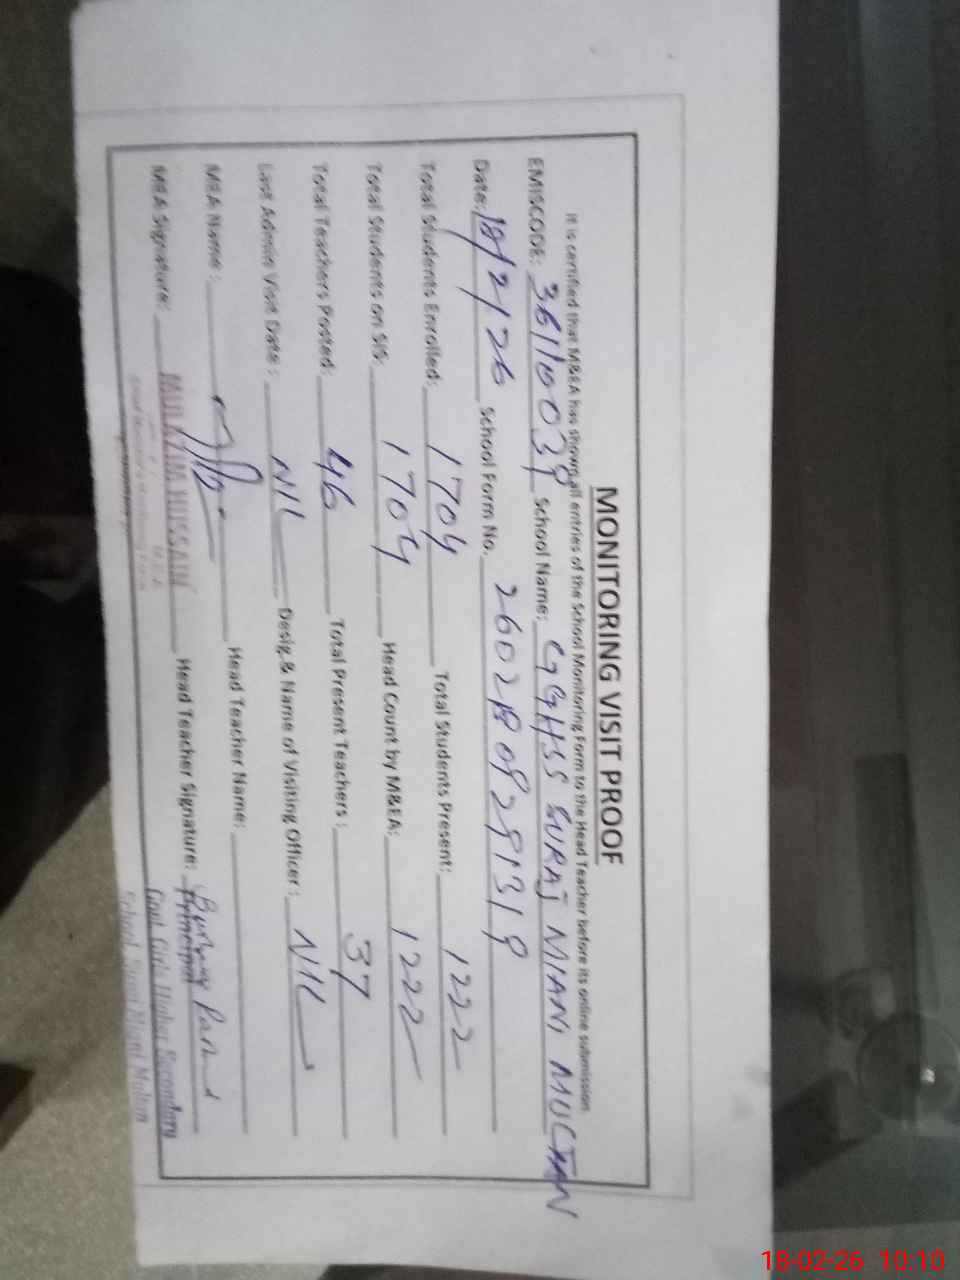 MONITORING VISIT PROOF
It is certified that M&EA has shown all entries of the School Monitoring Form to the Head Teacher before its online submission.
EMISCODE: 36110039 School Name: GGHSS SURAJ MIANI MULTAN
Date: 18/2/26 School Form No. 26021808291319
Total Students Enrolled: 1704 Total Students Present: 1222
Total Students on SIS: 1704 Head Count by M&EA: 1222
Total Teachers Posted: 46 Total Present Teachers: 37
Last Admin Visit Date: NIL Desig.& Name of Visiting Officer: NIL
MEA Name: Head Teacher Name:
MEA Signature: MULAZIM HUSSAIN Head Teacher Signature:
M.E.A
Principal
Govt. Girls Higher Secondary
School, Suraj Miani Multan
18-02-26 10:10